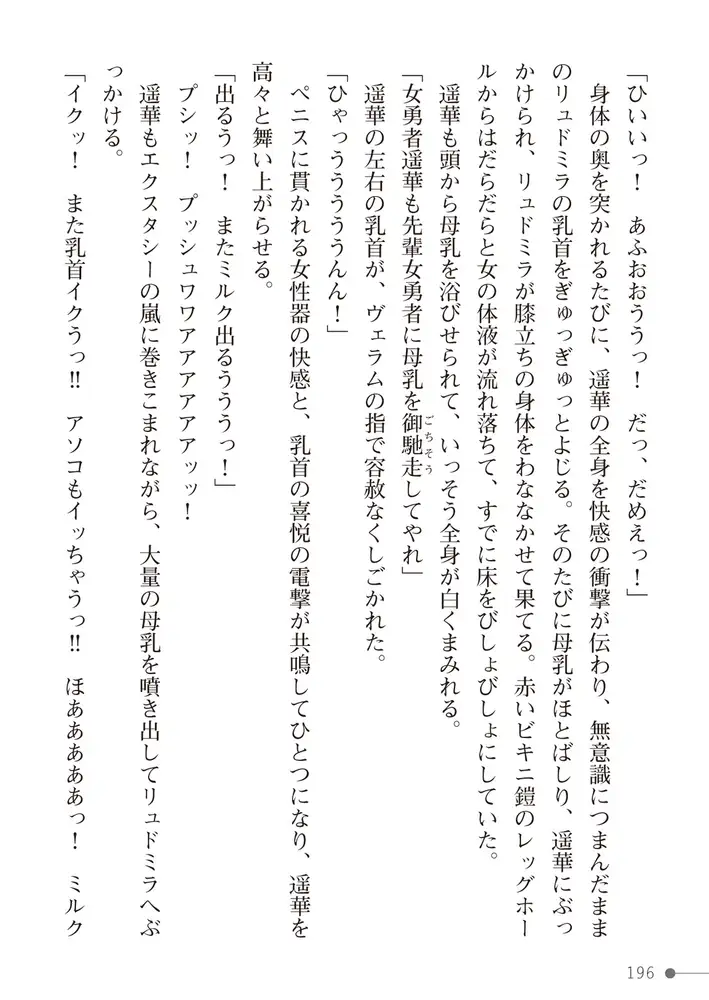 「ひいいっ！　あふおおううっ！　だっ、だめえっ！」
　身体の奥を突かれるたびに、遥華の全身を快感の衝撃が伝わり、無意識につまんだまま
のリュドミラの乳首をぎゅっぎゅっとよじる。そのたびに母乳がほとばしり、遥華にぶっ
かけられ、リュドミラが膝立ちの身体をわななかせて果てる。赤いビキニ鎧のレッグホー
ルからはだらだらと女の体液が流れ落ちて、すでに床をびしょびしょにしていた。
　遥華も頭から母乳を浴びせられて、いっそう全身が白くまみれる。
「女勇者遥華も先輩女勇者に母乳を御馳走してやれ」
ごちそう
　遥華の左右の乳首が、ヴェラムの指で容赦なくしごかれた。
「ひゃっううううううんん！」
　ペニスに貫かれる女性器の快感と、乳首の喜悦の電撃が共鳴してひとつになり、遥華を
高々と舞い上がらせる。
「出るうっ！　またミルク出るうううっ！」
　プシッ！　プッシュワワアアアアアアッッ！
　遥華もエクスタシーの嵐に巻きこまれながら、大量の母乳を噴き出してリュドミラへぶ
っかける。
「イクッ！　また乳首イクうっ‼　アソコもイッちゃうっ‼　ほああああああっ！　ミルク
196